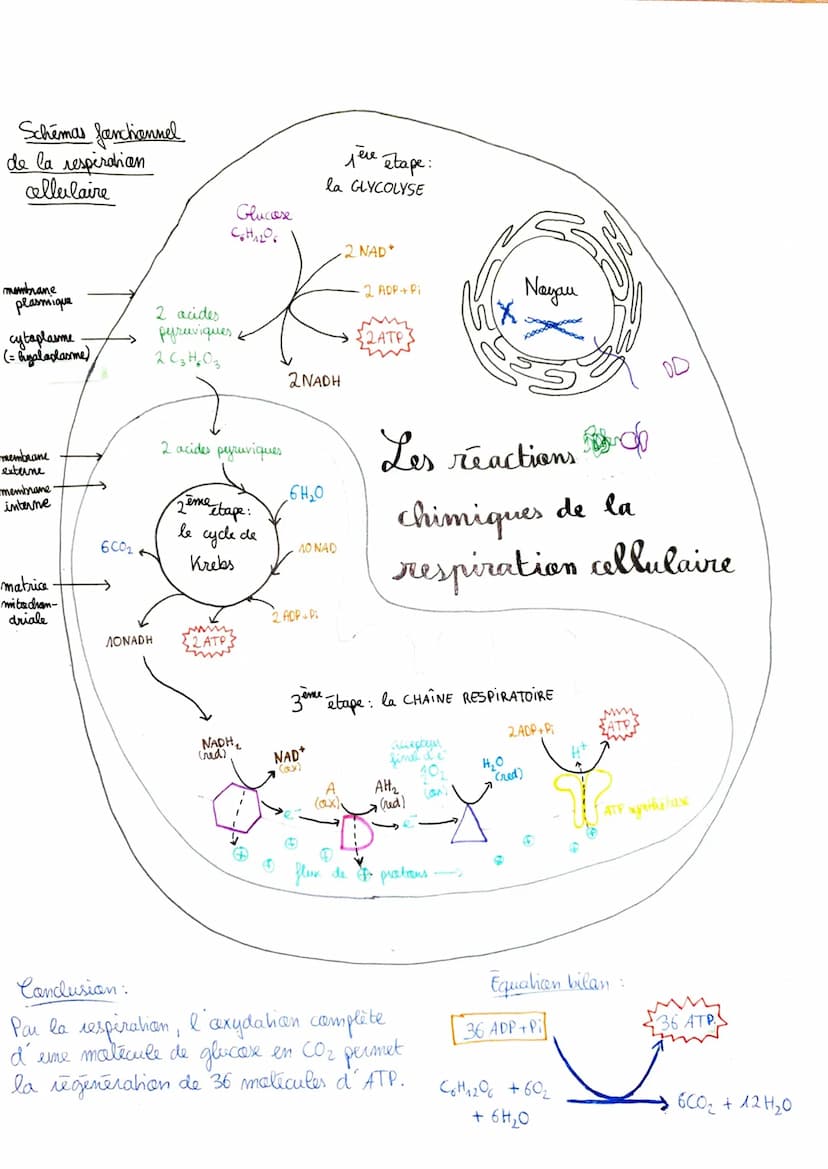 Schémas fonctionnel
de la respiration
cellulaire
1ère étape:
la GLYCOLYSE
Glucose
C₆H₁₂O₆
2 NAD⁺
2 ADP+Pi
2ATP
2NADH
2 acides
pyruviques
2 C₃H₆O₃
Noyau
membrane
plasmique
cytoplasme
(= hyaloplasme)
membrane
externe
membrane
interne
matrice
mitochon-
driale
2 acides pyruviques
2ème étape:
le cycle de
Krebs
6H₂O
10NAD
6CO₂
2 ADP+Pi
10NADH
2ATP
Les réactions
chimiques de la
respiration cellulaire
3ème étape: la CHAÎNE RESPIRATOIRE
NADH₂
(red)
NAD⁺
(ox)
e⁻
A
(ox)
AH₂
(red)
e⁻
accepteur
final d'e⁻
O₂
(ox)
H₂O
(red)
2ADP+Pi
H⁺
ATP
ATP synthétase
flux de protons
Conclusion:
Par la respiration, l'oxydation complète
d'une molécule de glucose en CO₂ permet
la régénération de 36 molécules d'ATP.
Équation bilan:
36 ADP+Pi
36 ATP
C₆H₁₂O₆ + 6O₂
+ 6H₂O
6CO₂ + 12H₂O